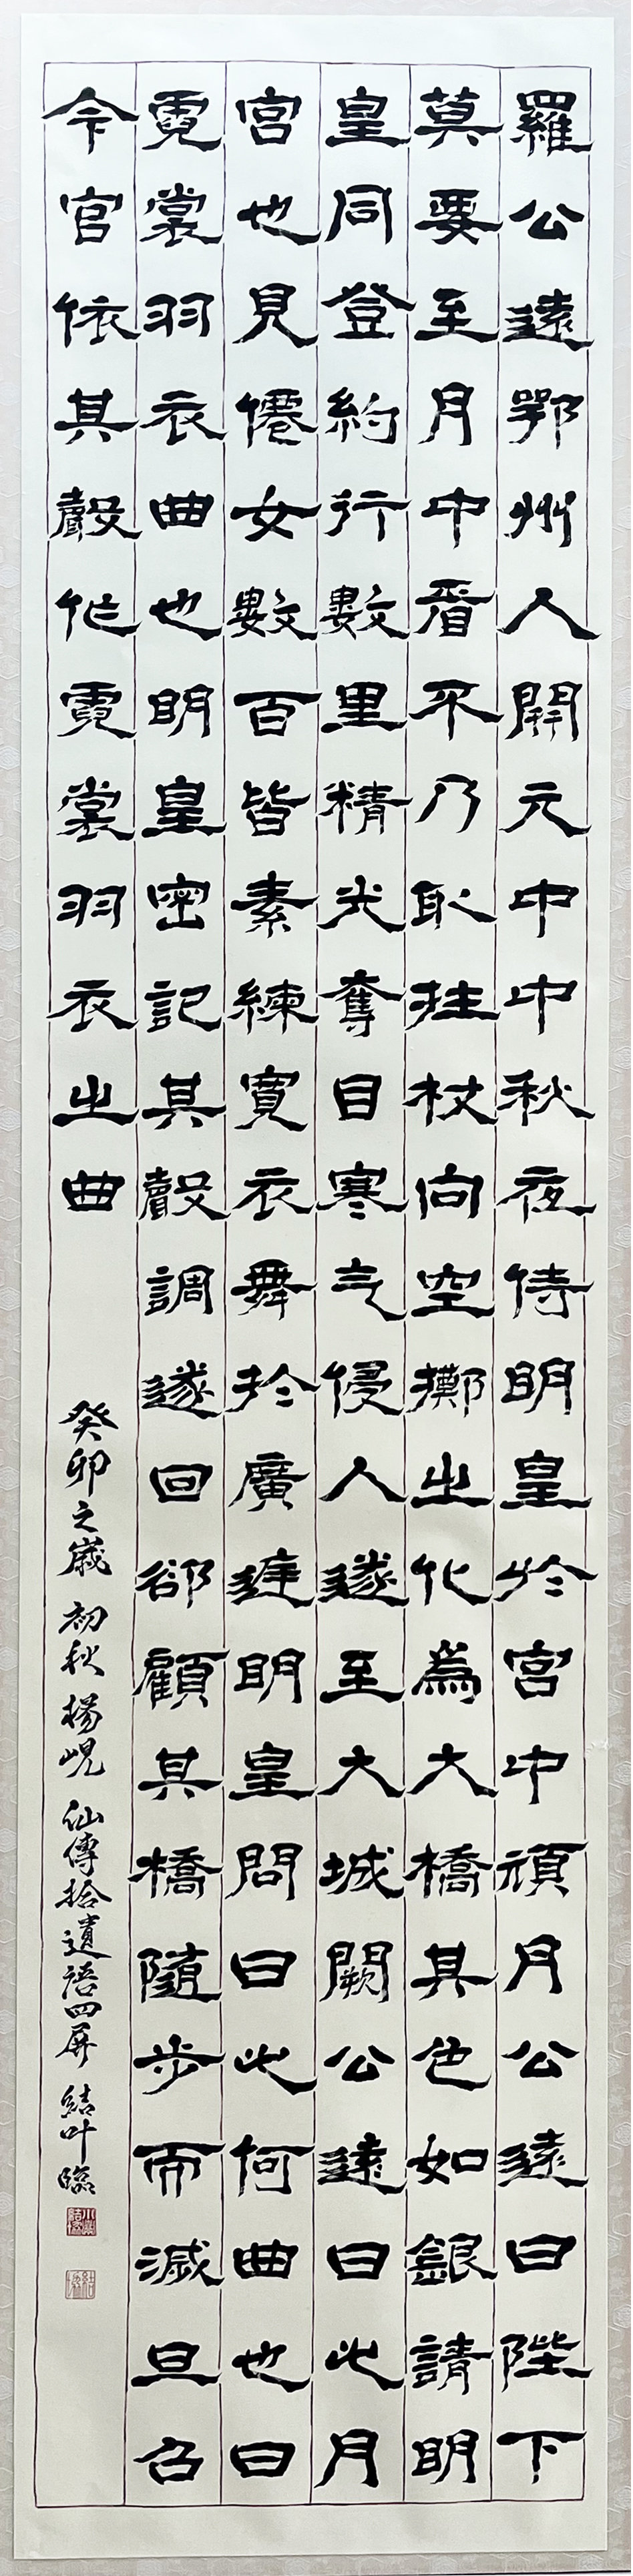 羅公遠鄂州人開元中中秋夜侍明皇於宮中頑月公遠曰陛下
莫要至月中看不乃取拄杖向空擲之化為大橋其色如銀請明
皇同登約行數里精光奪目寒气侵人遂至大城闕公遠曰此月
宮也見僊女數百皆素練寬衣舞於廣庭明皇問曰此何曲也曰
霓裳羽衣曲也明皇密記其聲調遂回卻顧其橋隨步而滅旦召
令官依其聲作霓裳羽衣之曲
癸卯之歲 初秋 楊峴 仙傳拾遺語四屏 結叶臨